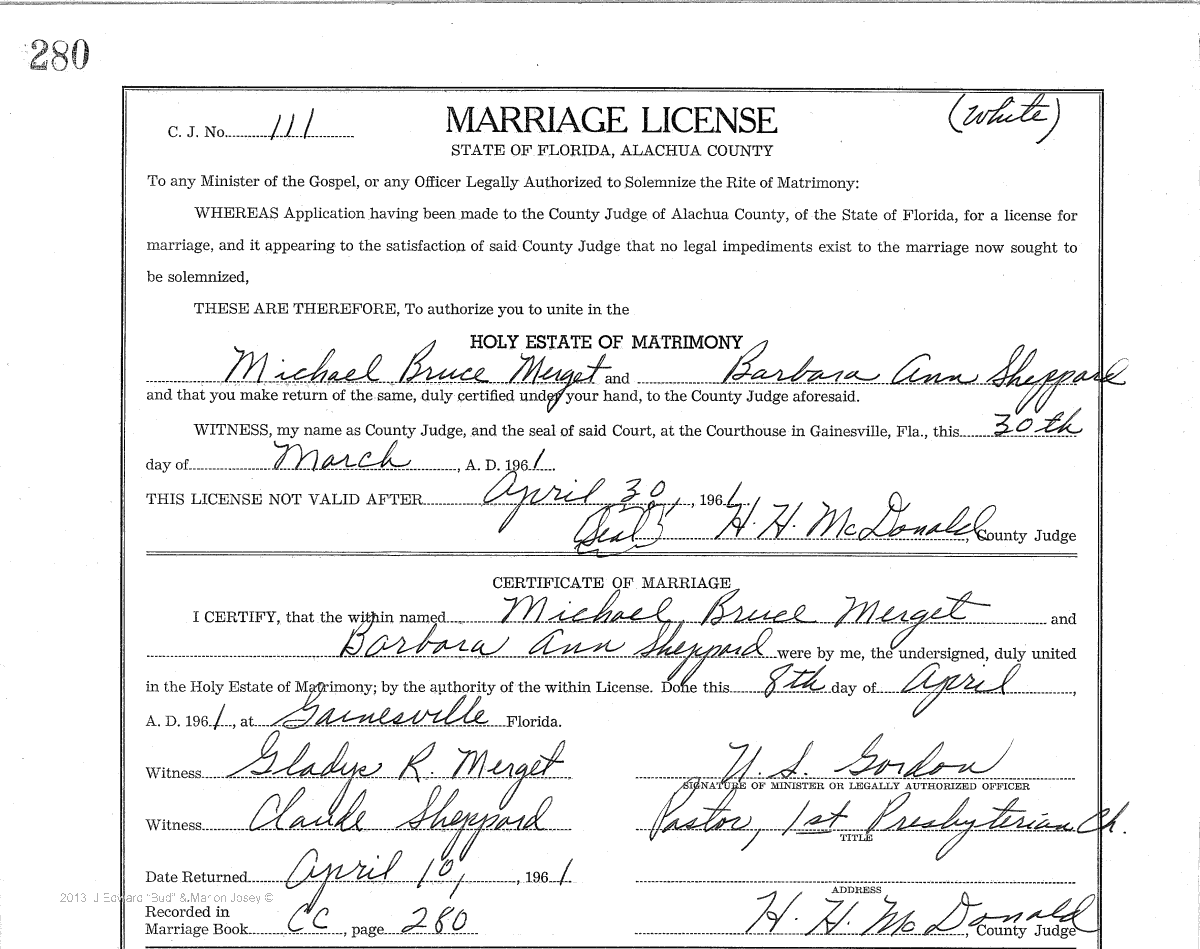 280
C. J. No. 111
MARRIAGE LICENSE
(White)
STATE OF FLORIDA, ALACHUA COUNTY
To any Minister of the Gospel, or any Officer Legally Authorized to Solemnize the Rite of Matrimony:
WHEREAS Application having been made to the County Judge of Alachua County, of the State of Florida, for a license for
marriage, and it appearing to the satisfaction of said County Judge that no legal impediments exist to the marriage now sought to
be solemnized,
THESE ARE THEREFORE, To authorize you to unite in the
HOLY ESTATE OF MATRIMONY
Michael Bruce Merget and Barbara Ann Sheppard
and that you make return of the same, duly certified under your hand, to the County Judge aforesaid.
WITNESS, my name as County Judge, and the seal of said Court, at the Courthouse in Gainesville, Fla., this 30th
day of March, A. D. 1961.
THIS LICENSE NOT VALID AFTER April 30, 1961
(Seal) H. H. McDonald, County Judge
CERTIFICATE OF MARRIAGE
I CERTIFY, that the within named Michael Bruce Merget and
Barbara Ann Sheppard were by me, the undersigned, duly united
in the Holy Estate of Matrimony; by the authority of the within License. Done this 8th day of April,
A. D. 1961, at Gainesville Florida.
Witness Gladys R. Merget
U. S. Gordon
SIGNATURE OF MINISTER OR LEGALLY AUTHORIZED OFFICER
Witness Claude Sheppard
Pastor, 1st Presbyterian Ch.
TITLE
Date Returned April 10, 1961
ADDRESS
2013 J Edward "Bud" & Marion Josey ©
Recorded in
Marriage Book CC, page 280
H. H. McDonald, County Judge